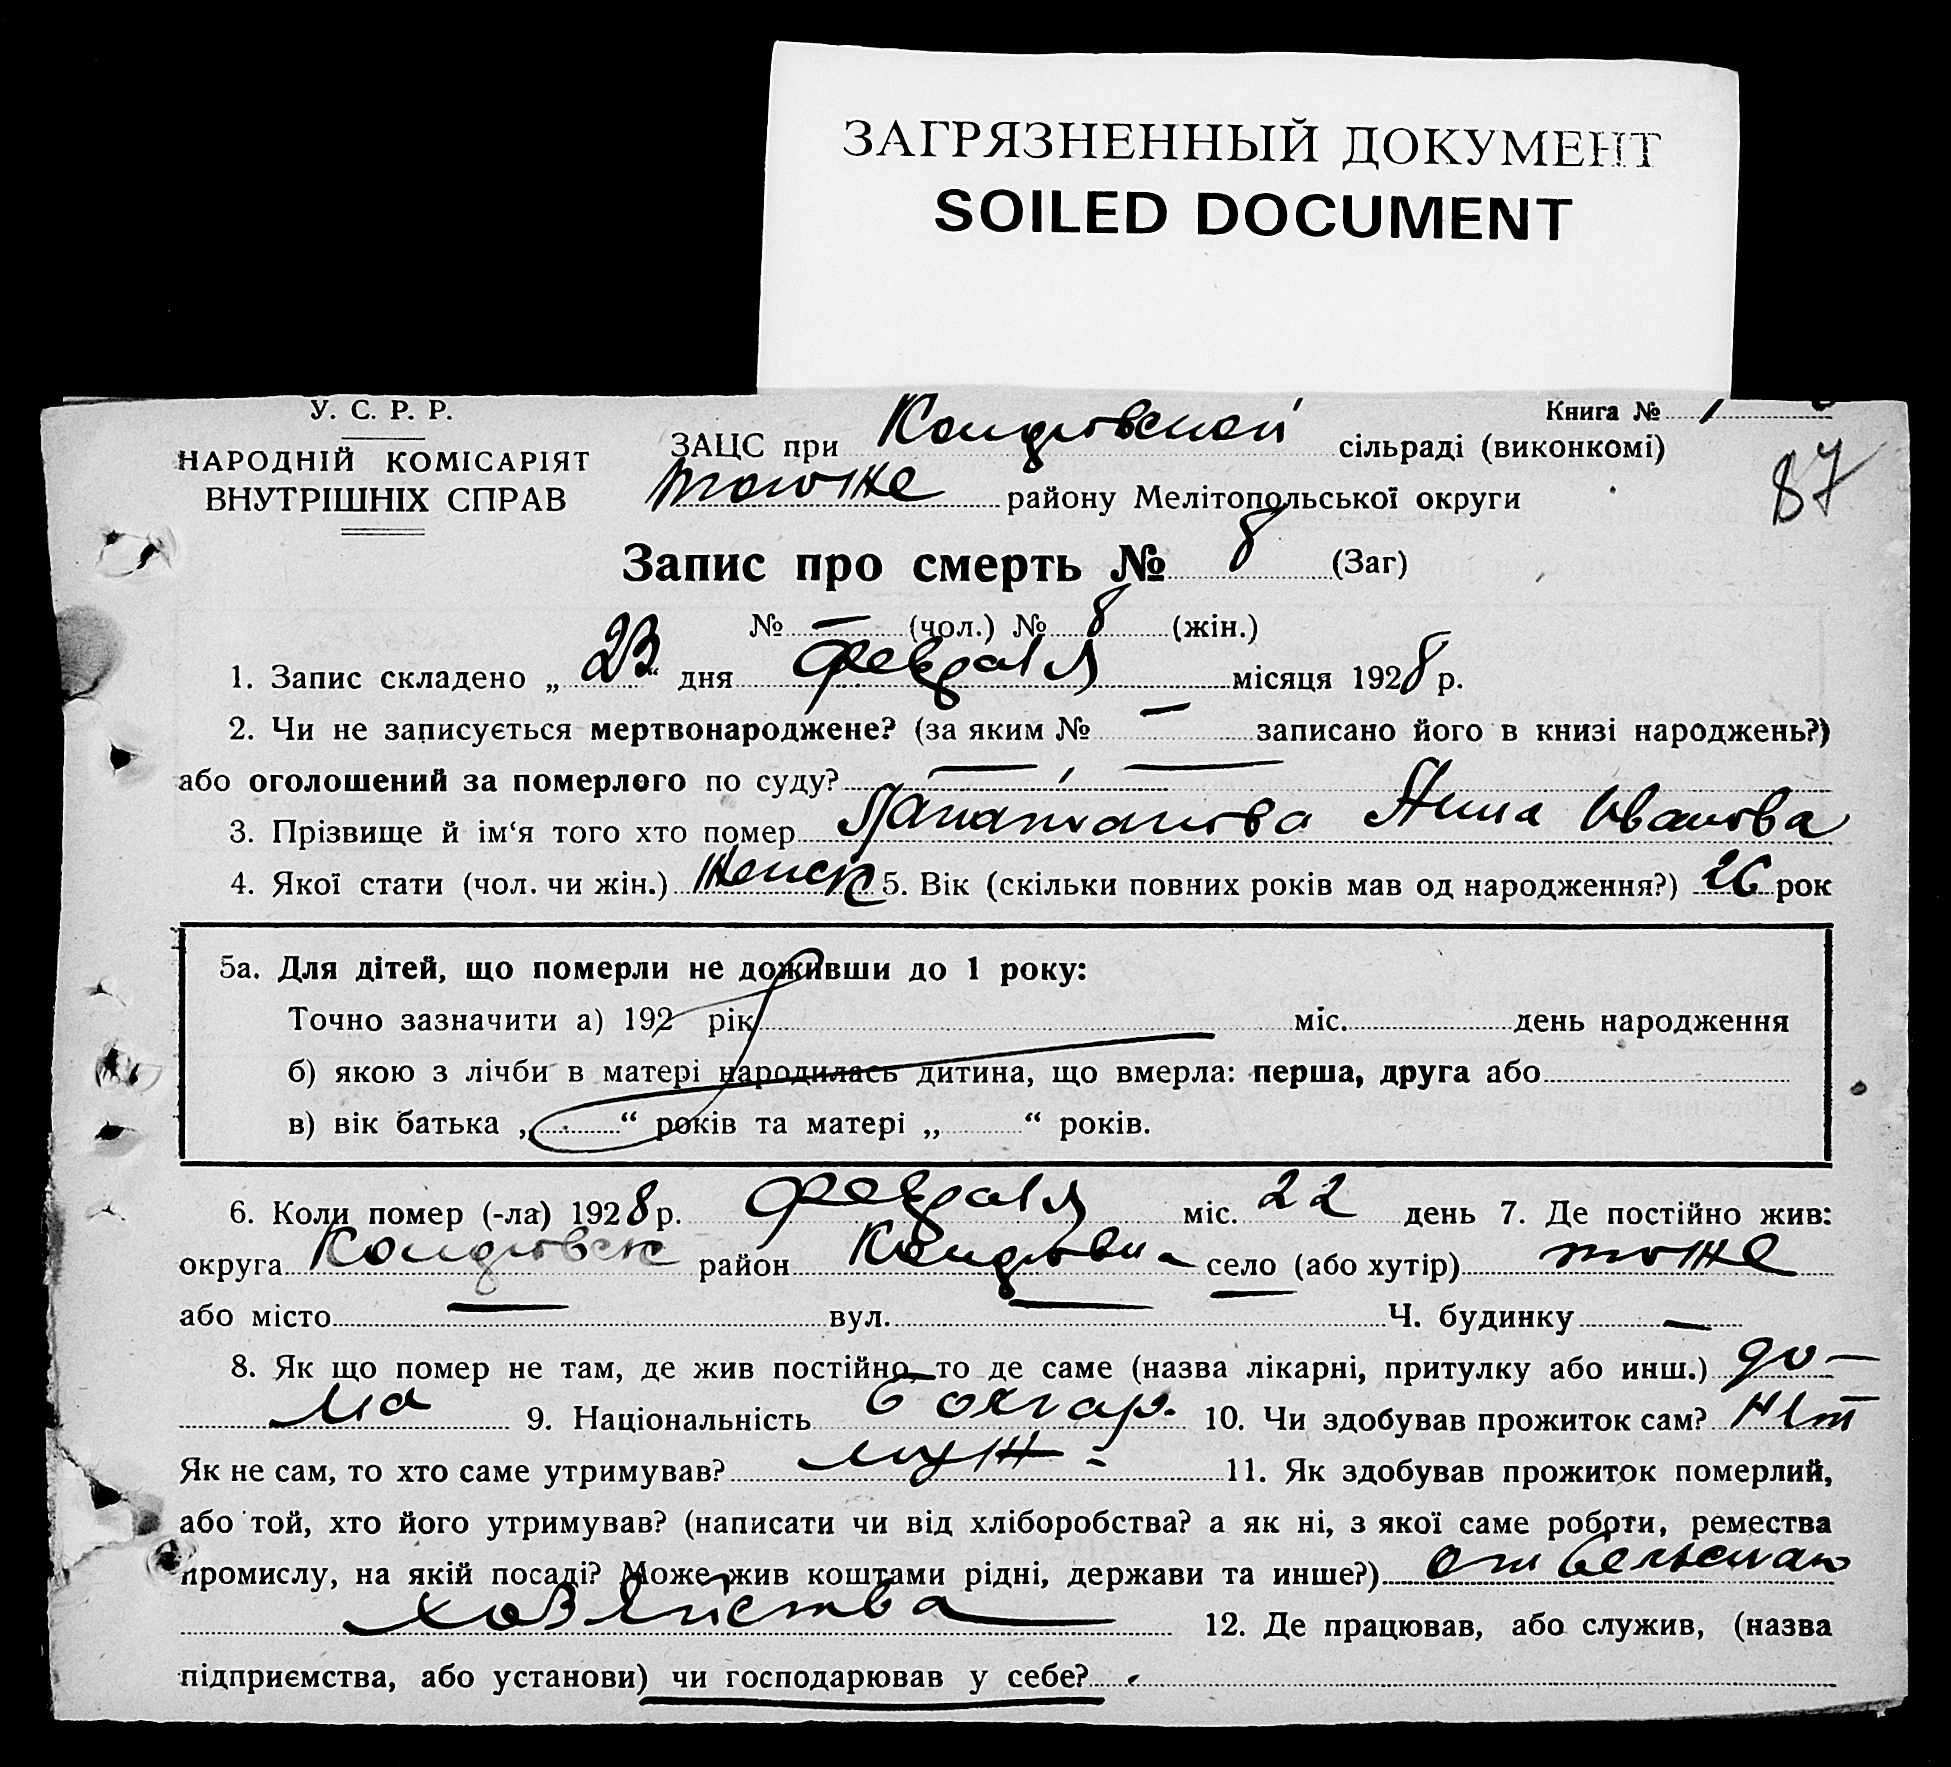 ЗАГРЯЗНЕННЫЙ ДОКУМЕНТ
SOILED DOCUMENT
У. С. Р. Р.
НАРОДНІЙ КОМІСАРІЯТ
ВНУТРІШНІХ СПРАВ
Книга № 1
ЗАЦС при сільраді (виконкомі)
87
тоже району Мелітопольської округи
Запис про смерть № 8 (Заг)
№ — (чол.) № 8 (жін.)
1. Запис складено „ 23 “ дня февраля місяця 1928 р.
2. Чи не записується мертвонароджене? (за яким № — записано його в книзі народжень?)
або оголошений за померлого по суду? — —
3. Прізвище й ім‘я того хто помер Анна Иванова
4. Якої стати (чол. чи жін.) Женск 5. Вік (скільки повних років мав од народження?) 26 рок
5а. Для дітей, що померли не доживши до 1 року:
Точно зазначити а) 192 рік міс. день народження
б) якою з лічби в матері народилась дитина, що вмерла: перша, друга або
в) вік батька „ “ років та матері „ “ років.
6. Коли помер (-ла) 1928 р. февраля міс. 22 день 7. Де постійно жив:
округа район село (або хутір) тоже
або місто — вул. — Ч. будинку —
8. Як що помер не там, де жив постійно, то де саме (назва лікарні, притулку або инш.) до—
ма 9. Національність болгар. 10. Чи здобував прожиток сам? нет
Як не сам, то хто саме утримував? муж - 11. Як здобував прожиток померлий,
або той, хто його утримував? (написати чи від хліборобства? а як ні, з якої саме роботи, ремества
промислу, на якій посаді? Може жив коштами рідні, держави та инше?) от сельскаго
хозяйства 12. Де працював, або служив, (назва
підприємства, або установи) чи господарював у себе?